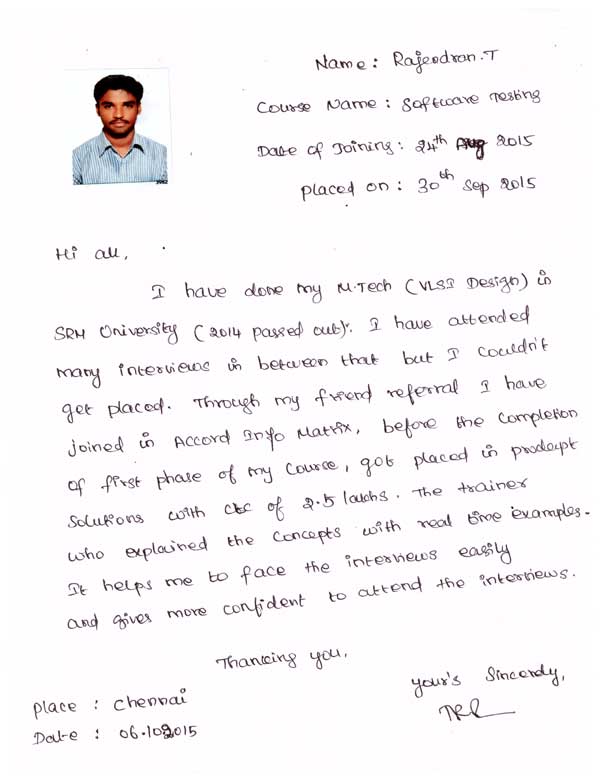 Name : Rajendran.T
Course Name : Software Testing
Date of Joining : 24th Aug 2015
placed on : 30th Sep 2015
Hi all,
I have done my M.Tech (VLSI Design) in
SRM University (2014 passed out). I have attended
many interviews in between that but I couldn't
get placed. Through my friend referral I have
joined in Accord Info Matrix, before the completion
of first phase of my course, got placed in prodapt
solutions with ctc of 2.5 lakhs. The trainer
who explained the concepts with real time examples.
It helps me to face the interviews easily
and gives more confident to attend the interviews.
Thanking you,
your's Sincerely,
Place : Chennai
Date : 06.10.2015